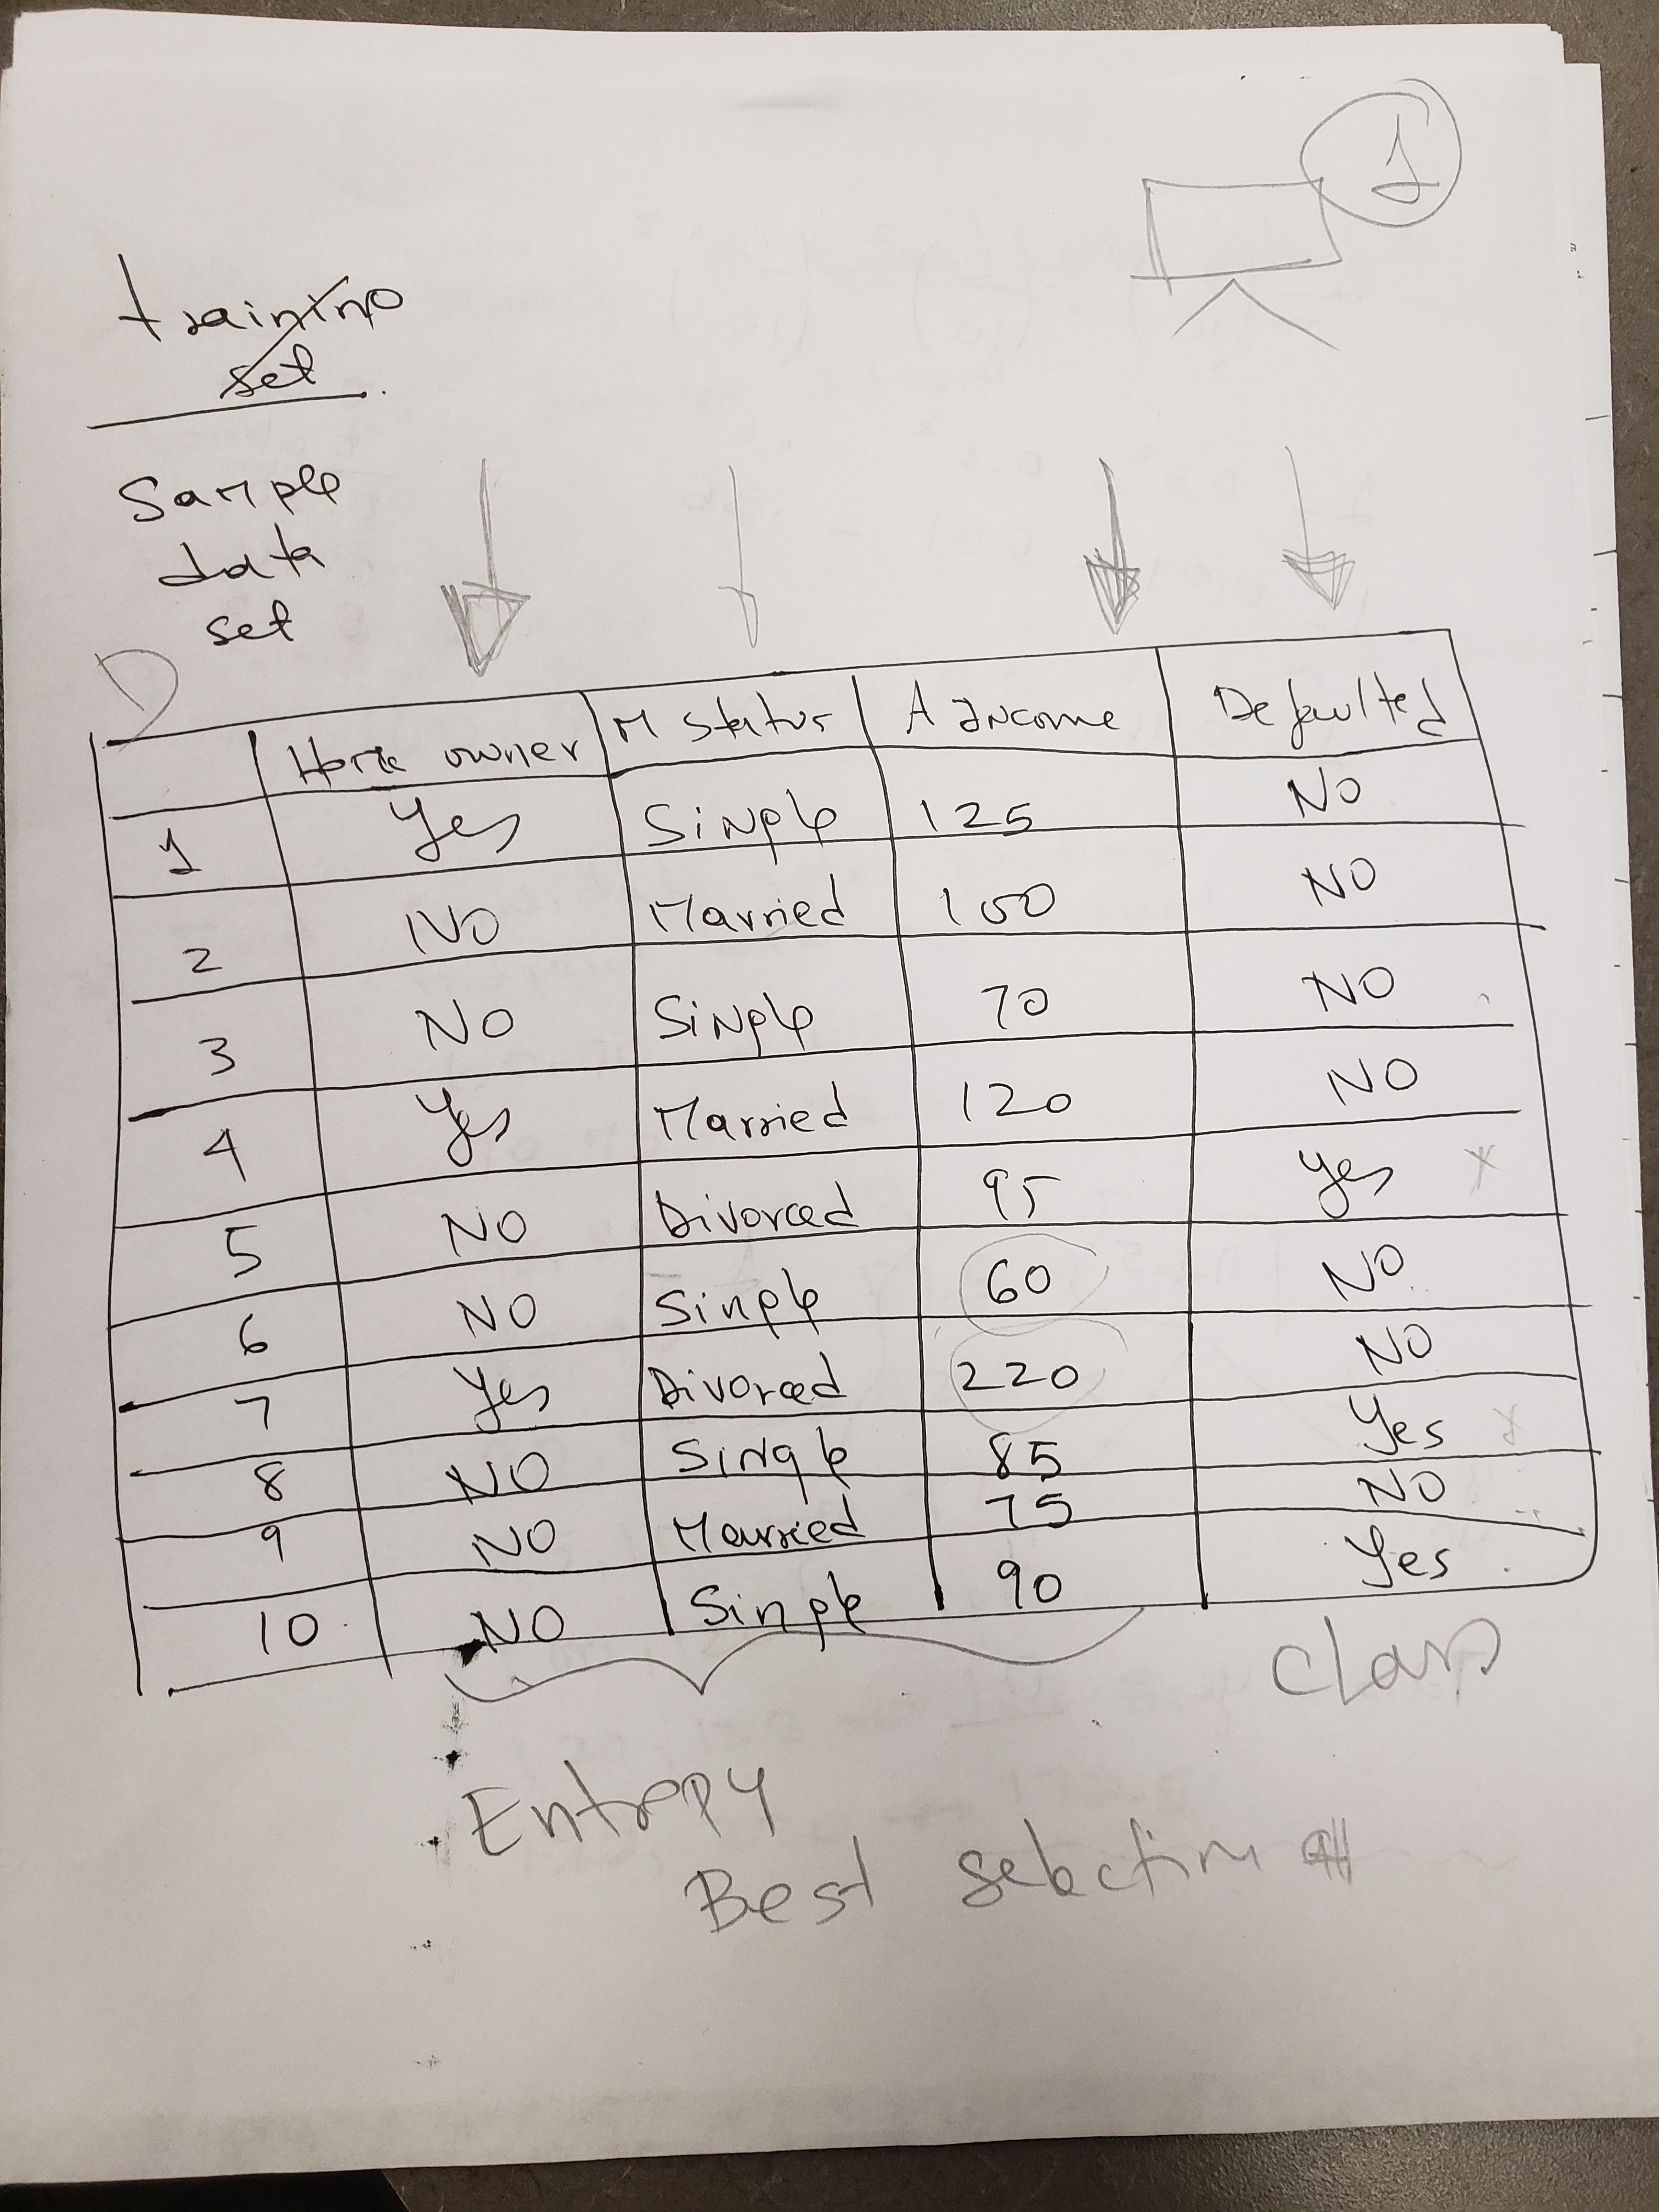 1
training
set
Sample
data
set
D
Home owner M Status A Income Defaulted
1 Yes Single 125 NO
2 NO Married 100 NO
3 NO Single 70 NO
4 Yes Married 120 NO
5 NO Divorced 95 Yes x
6 NO Single 60 NO
7 Yes Divorced 220 NO
8 NO Single 85 Yes x
9 NO Married 75 NO
10 NO Single 90 Yes
class
Entropy
Best selection